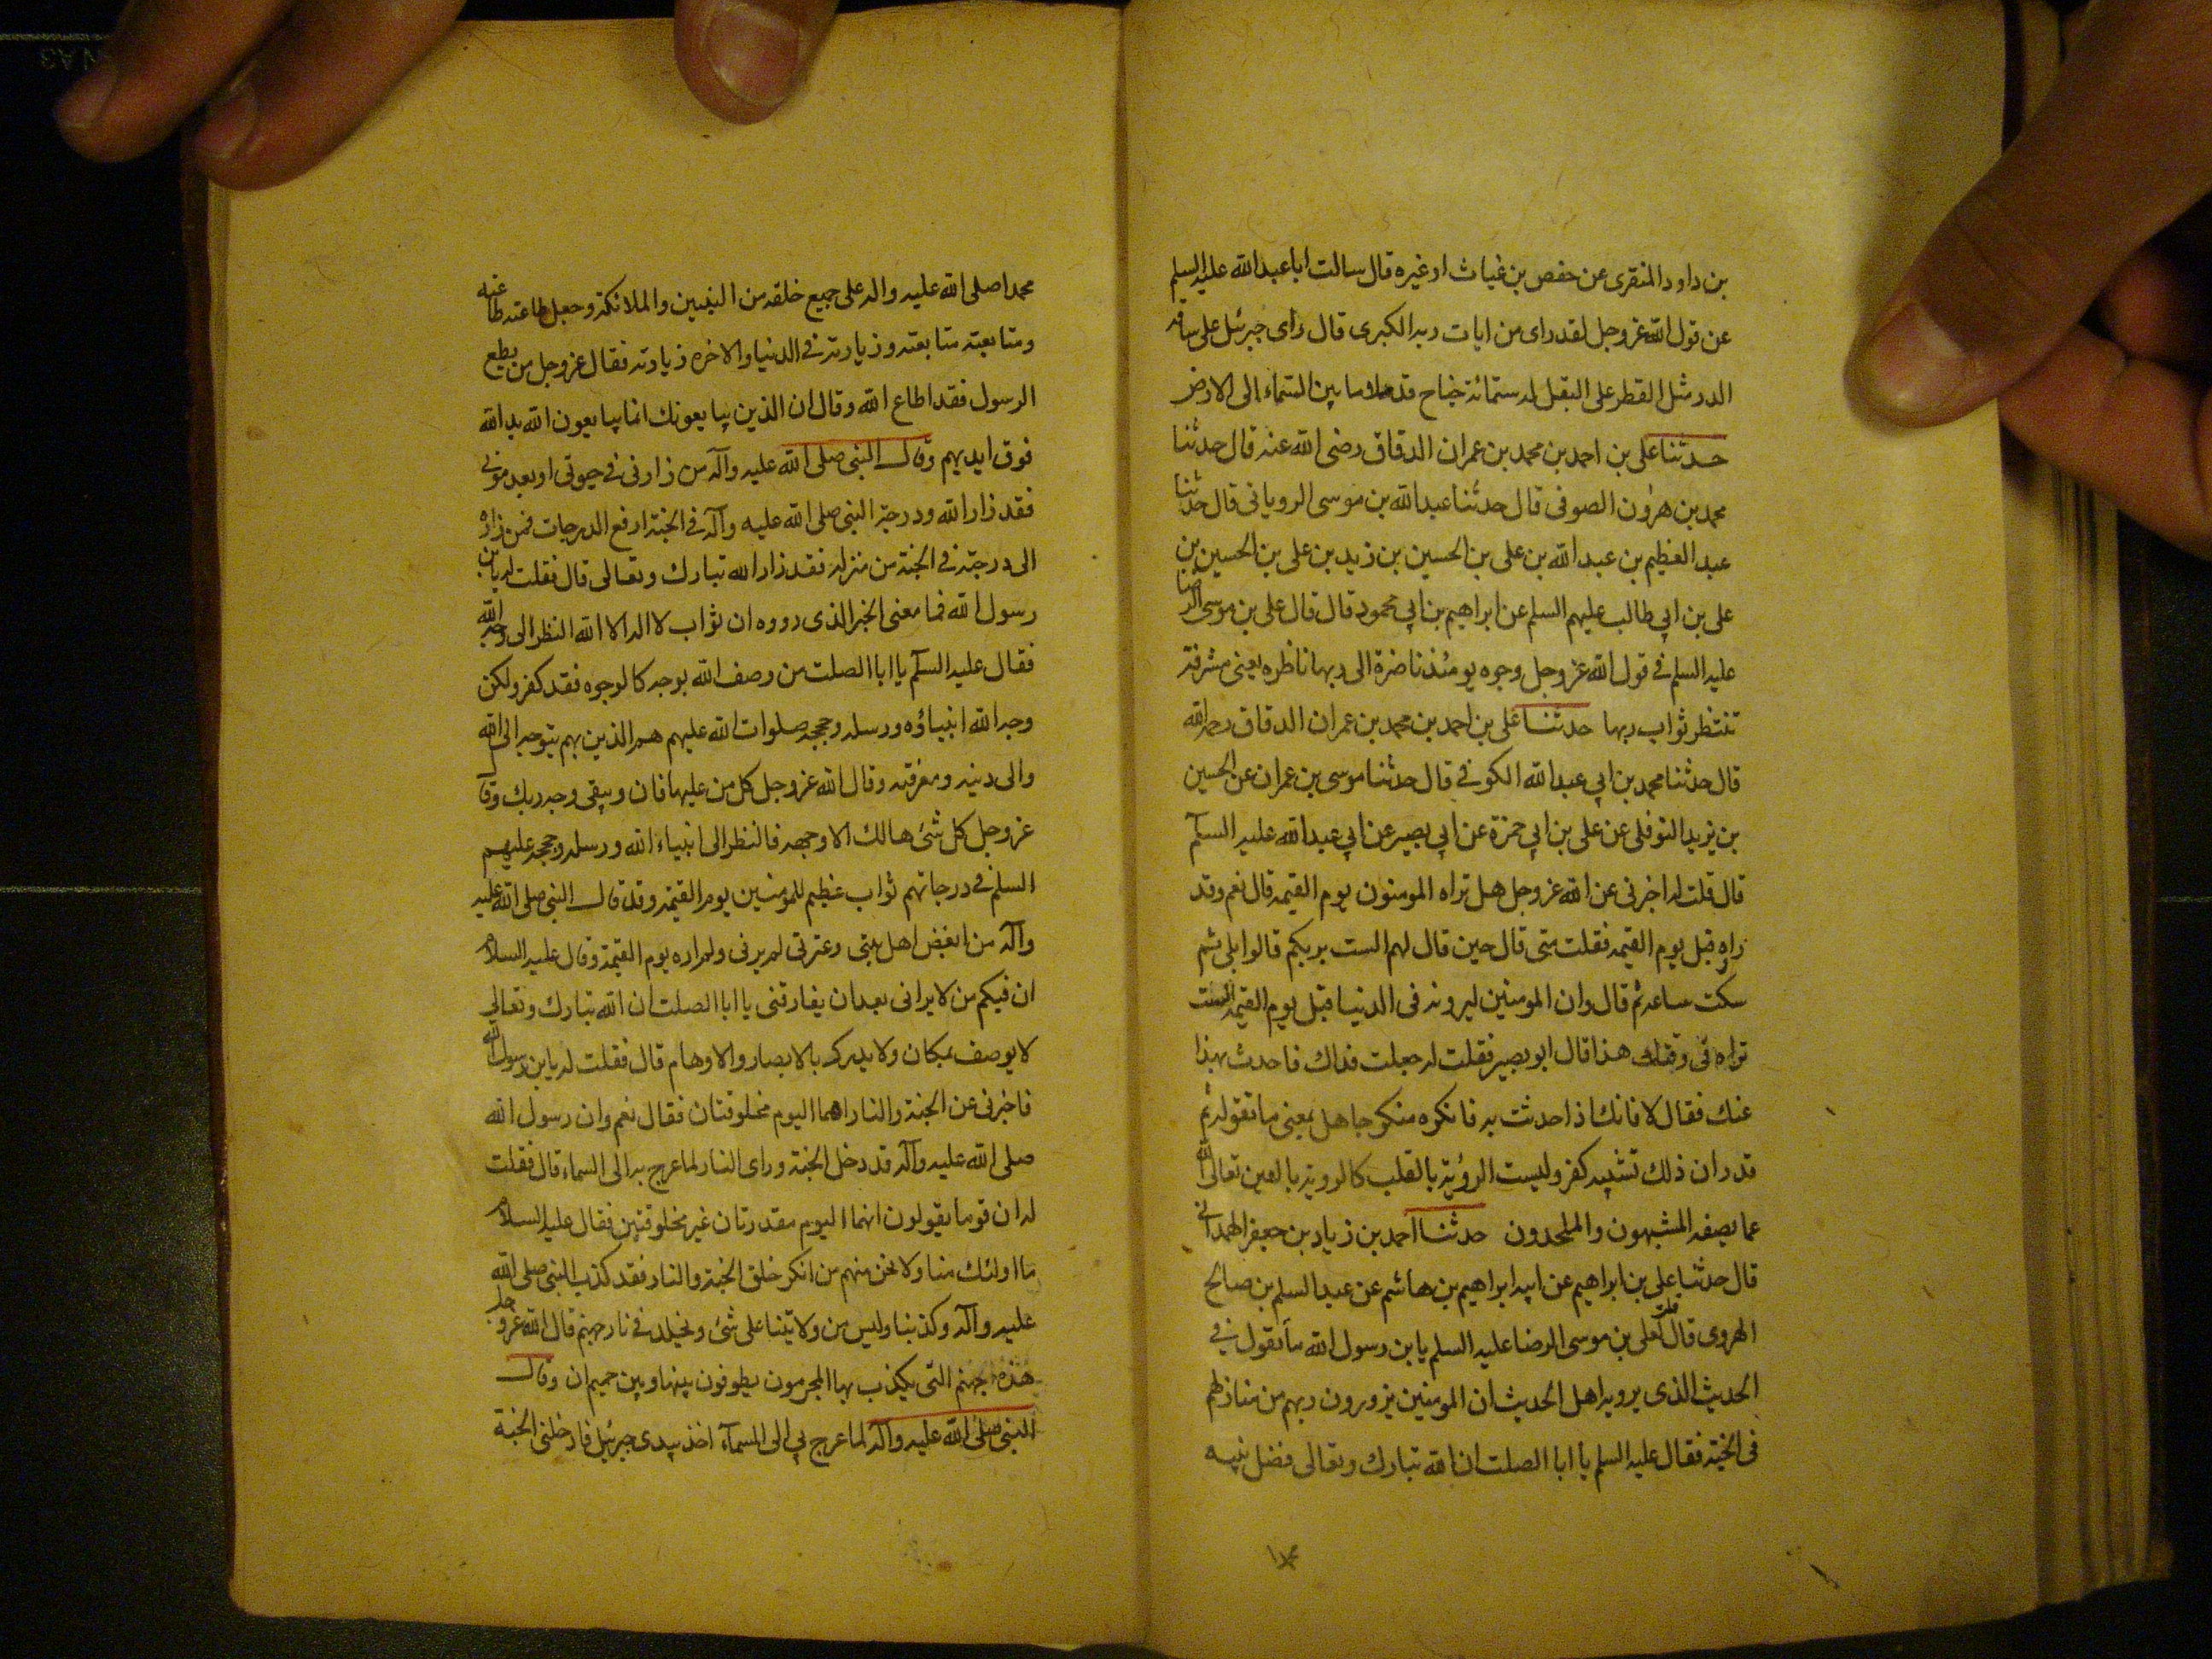 بن داود المنقرى عن حفص بن غياث او غيره قال سالت ابا عبد الله عليه السلم
عن قول الله عز وجل لقد راى من ايات ربه الكبرى قال راى جبرئيل على ساقه
الدر مثل القطر على البقل له ستمائة جناح قد ملا ما بين السماء الى الارض
حدثنا على بن احمد بن محمد بن عمران الدقاق رضى الله عنه قال حدثنا
محمد بن هرون الصوفى قال حدثنا عبد الله بن موسى الرويانى قال حدثنا
عبد العظيم بن عبد الله بن على بن الحسين بن زيد بن على بن الحسين بن
على بن ابي طالب عليهم السلم عن ابراهيم بن ابي محمود قال قال على بن موسى الرضا
عليه السلم في قول الله عز وجل وجوه يومئذ ناضرة الى ربها ناظره يعنى مشرقة
تنتظر ثواب ربها حدثنا على بن احمد بن محمد بن عمران الدقاق رحمه الله
قال حدثنا محمد بن ابي عبد الله الكوفي قال حدثنا موسى بن عمران عن الحسين
بن يزيد النوفلى عن على بن ابي حمزة عن ابي بصير عن ابي عبد الله عليه السلم
قال قلت له اخبرنى عن الله عز وجل هل يراه المومنون يوم القيمه قال نعم وقد
راه قبل يوم القيمه فقلت متى قال حين قال لهم الست بربكم قالوا بلى ثم
سكت ساعه ثم قال وان المومنين ليرونه فى الدنيا قبل يوم القيمه الست
تراه فى وقتك هذا قال ابو بصير فقلت له جعلت فداك فاحدث بهذا
عنك فقال لا فانك اذا حدثت به فانكره منكر جاهل بمعنى ما تقوله ثم
قدر ان ذلك تشبيه كفر وليست الرؤية بالقلب كالروية بالعين تعالى الله
عما يصفه المشبهون والملحدون حدثنا احمد بن زياد بن جعفر الهمدانى
قال حدثنا على بن ابراهيم عن ابيه ابراهيم بن هاشم عن عبد السلم بن صالح
الهروى قال قلت لعلى بن موسى الرضا عليه السلم يا بن رسول الله ما تقول في
الحديث الذى يرويه اهل الحديث ان المومنين يزورون ربهم من منازلهم
فى الجنة فقال عليه السلم يا ابا الصلت ان الله تبارك وتعالى فضل نبيه
محمدا صلى الله عليه واله على جميع خلقه من النبيين والملائكة وجعل طاعته طاعته
ومتابعته متابعته وزيارته فى الدنيا والاخره زيارته فقال عز وجل من يطع
الرسول فقد اطاع الله وقال ان الذين يبايعونك انما يبايعون الله يد الله
فوق ايديهم وقال النبى صلى الله عليه وآله من زارنى في حيوتى او بعد موتى
فقد زار الله ودرجة النبى صلى الله عليه وآله فى الجنة ارفع الدرجات فمن زاره
الى درجته فى الجنة من منزله فقد زار الله تبارك وتعالى قال فقلت له يا بن
رسول الله فما معنى الخبر الذى رووه ان ثواب لا اله الا الله النظر الى وجه الله
فقال عليه السلم يا ابا الصلت من وصف الله بوجه كالوجوه فقد كفر ولكن
وجه الله انبياؤه ورسله وحججه صلوات الله عليهم هم الذين بهم يتوجه الى الله
والى دينه ومعرفته وقال الله عز وجل كل من عليها فان ويبقى وجه ربك وقال
عز وجل كل شئ هالك الا وجهه فالنظر الى انبياء الله ورسله وحججه عليهم
السلم فى درجاتهم ثواب عظيم للمومنين يوم القيمة وقد قال النبى صلى الله عليه
وآله من ابغض اهل بيتى وعترتى لم يرنى ولم اره يوم القيمة وقال عليه السلام
ان فيكم من لا يرانى بعد ان يفارقنى يا ابا الصلت ان الله تبارك وتعالى
لا يوصف بمكان ولا يدرك بالابصار والاوهام قال فقلت له يا بن رسول الله
فاخبرنى عن الجنة والنار اهما اليوم مخلوقتان فقال نعم وان رسول الله
صلى الله عليه وآله قد دخل الجنة وراى النار لما عرج به الى السماء قال فقلت
له ان قوما يقولون انهما اليوم مقدرتان غير مخلوقتين فقال عليه السلام
ما اولئك منا ولا نحن منهم من انكر خلق الجنة والنار فقد كذب النبى صلى الله
عليه وآله وكذبنا وليس من ولايتنا على شئ ويخلد فى نار جهنم قال الله عز وجل
هذه جهنم التى يكذب بها المجرمون يطوفون بينها وبين حميم ان وقال
النبى صلى الله عليه وآله لما عرج بي الى السمآء اخذ بيدى جبرئيل فادخلنى الجنة